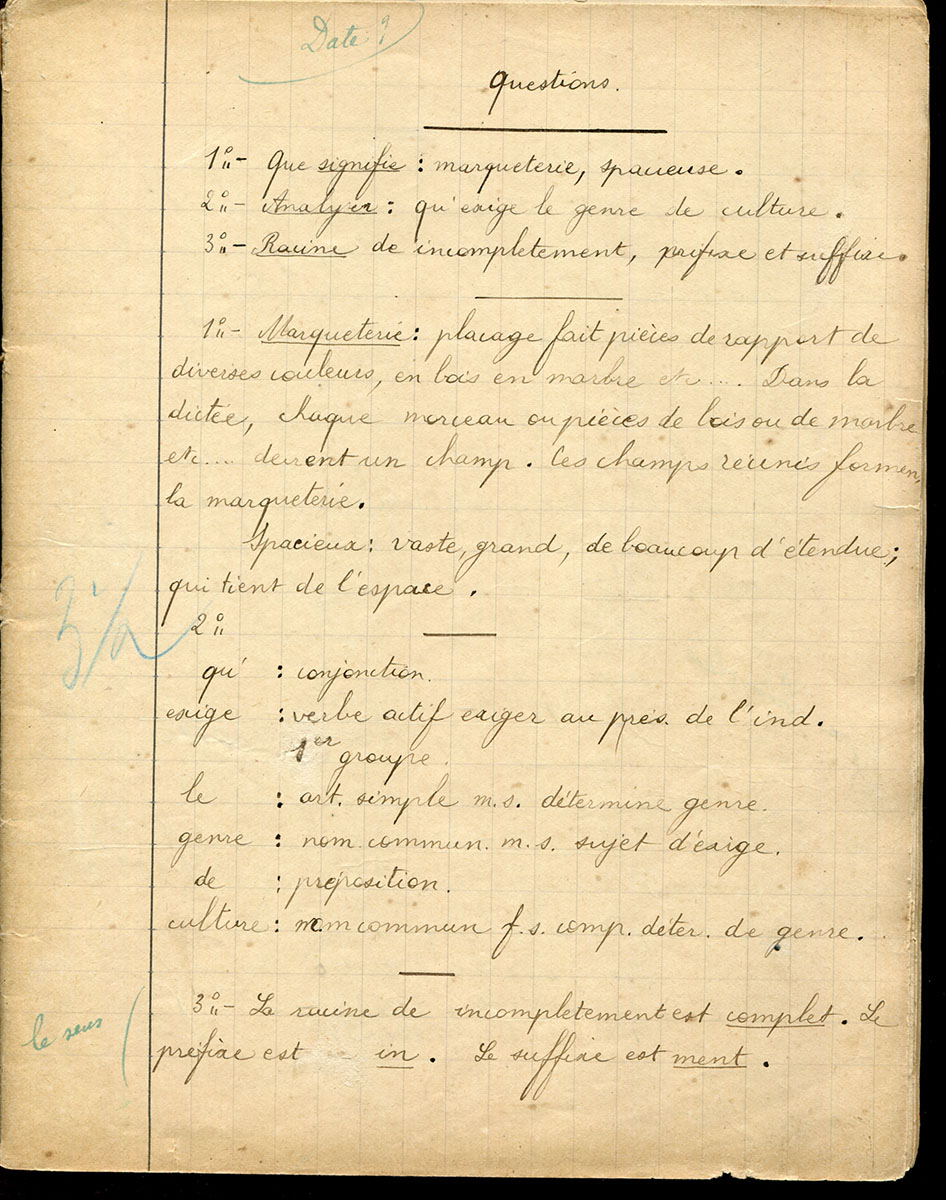 Date ?
Questions.
1° - Que signifie : marqueterie, spacieuse.
2° - Analyser : qu'exige le genre de culture.
3° - Racine de incomplètement, préfixe et suffixe.
1° - Marqueterie : placage fait pièces de rapport de
diverses couleurs, en bois en marbre etc.... Dans la
dictée, chaque morceau ou pièces de bois ou de marbre
etc.... devient un champ. Ces champs réunis formen
la marqueterie.
Spacieux : vaste, grand, de beaucoup d'étendue ;
qui tient de l'espace.
2°
qu' : conjonction.
exige : verbe actif exiger au prés. de l'ind.
1er groupe.
le : art. simple m. s. détermine genre.
genre : nom commun. m. s. sujet d'exige.
de : préposition.
culture : nom commun f. s. comp. déter. de genre.
le sens
3° - La racine de incomplètement est complet. Le
préfixe est in. Le suffixe est ment.